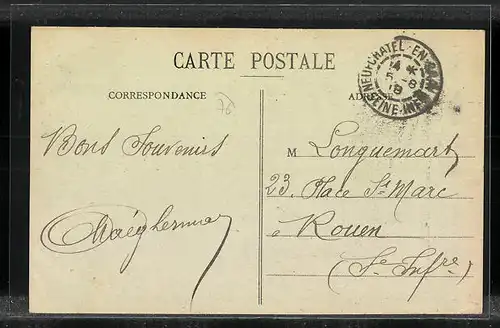 CARTE POSTALE
CORRESPONDANCE
76
Bons Souvenirs
NEUFCHATEL-EN-BRAY
14 *
5 -8
18
SEINE-INFRE
M Longuemart
23, Place St Marc
à Rouen
(Se Infre)